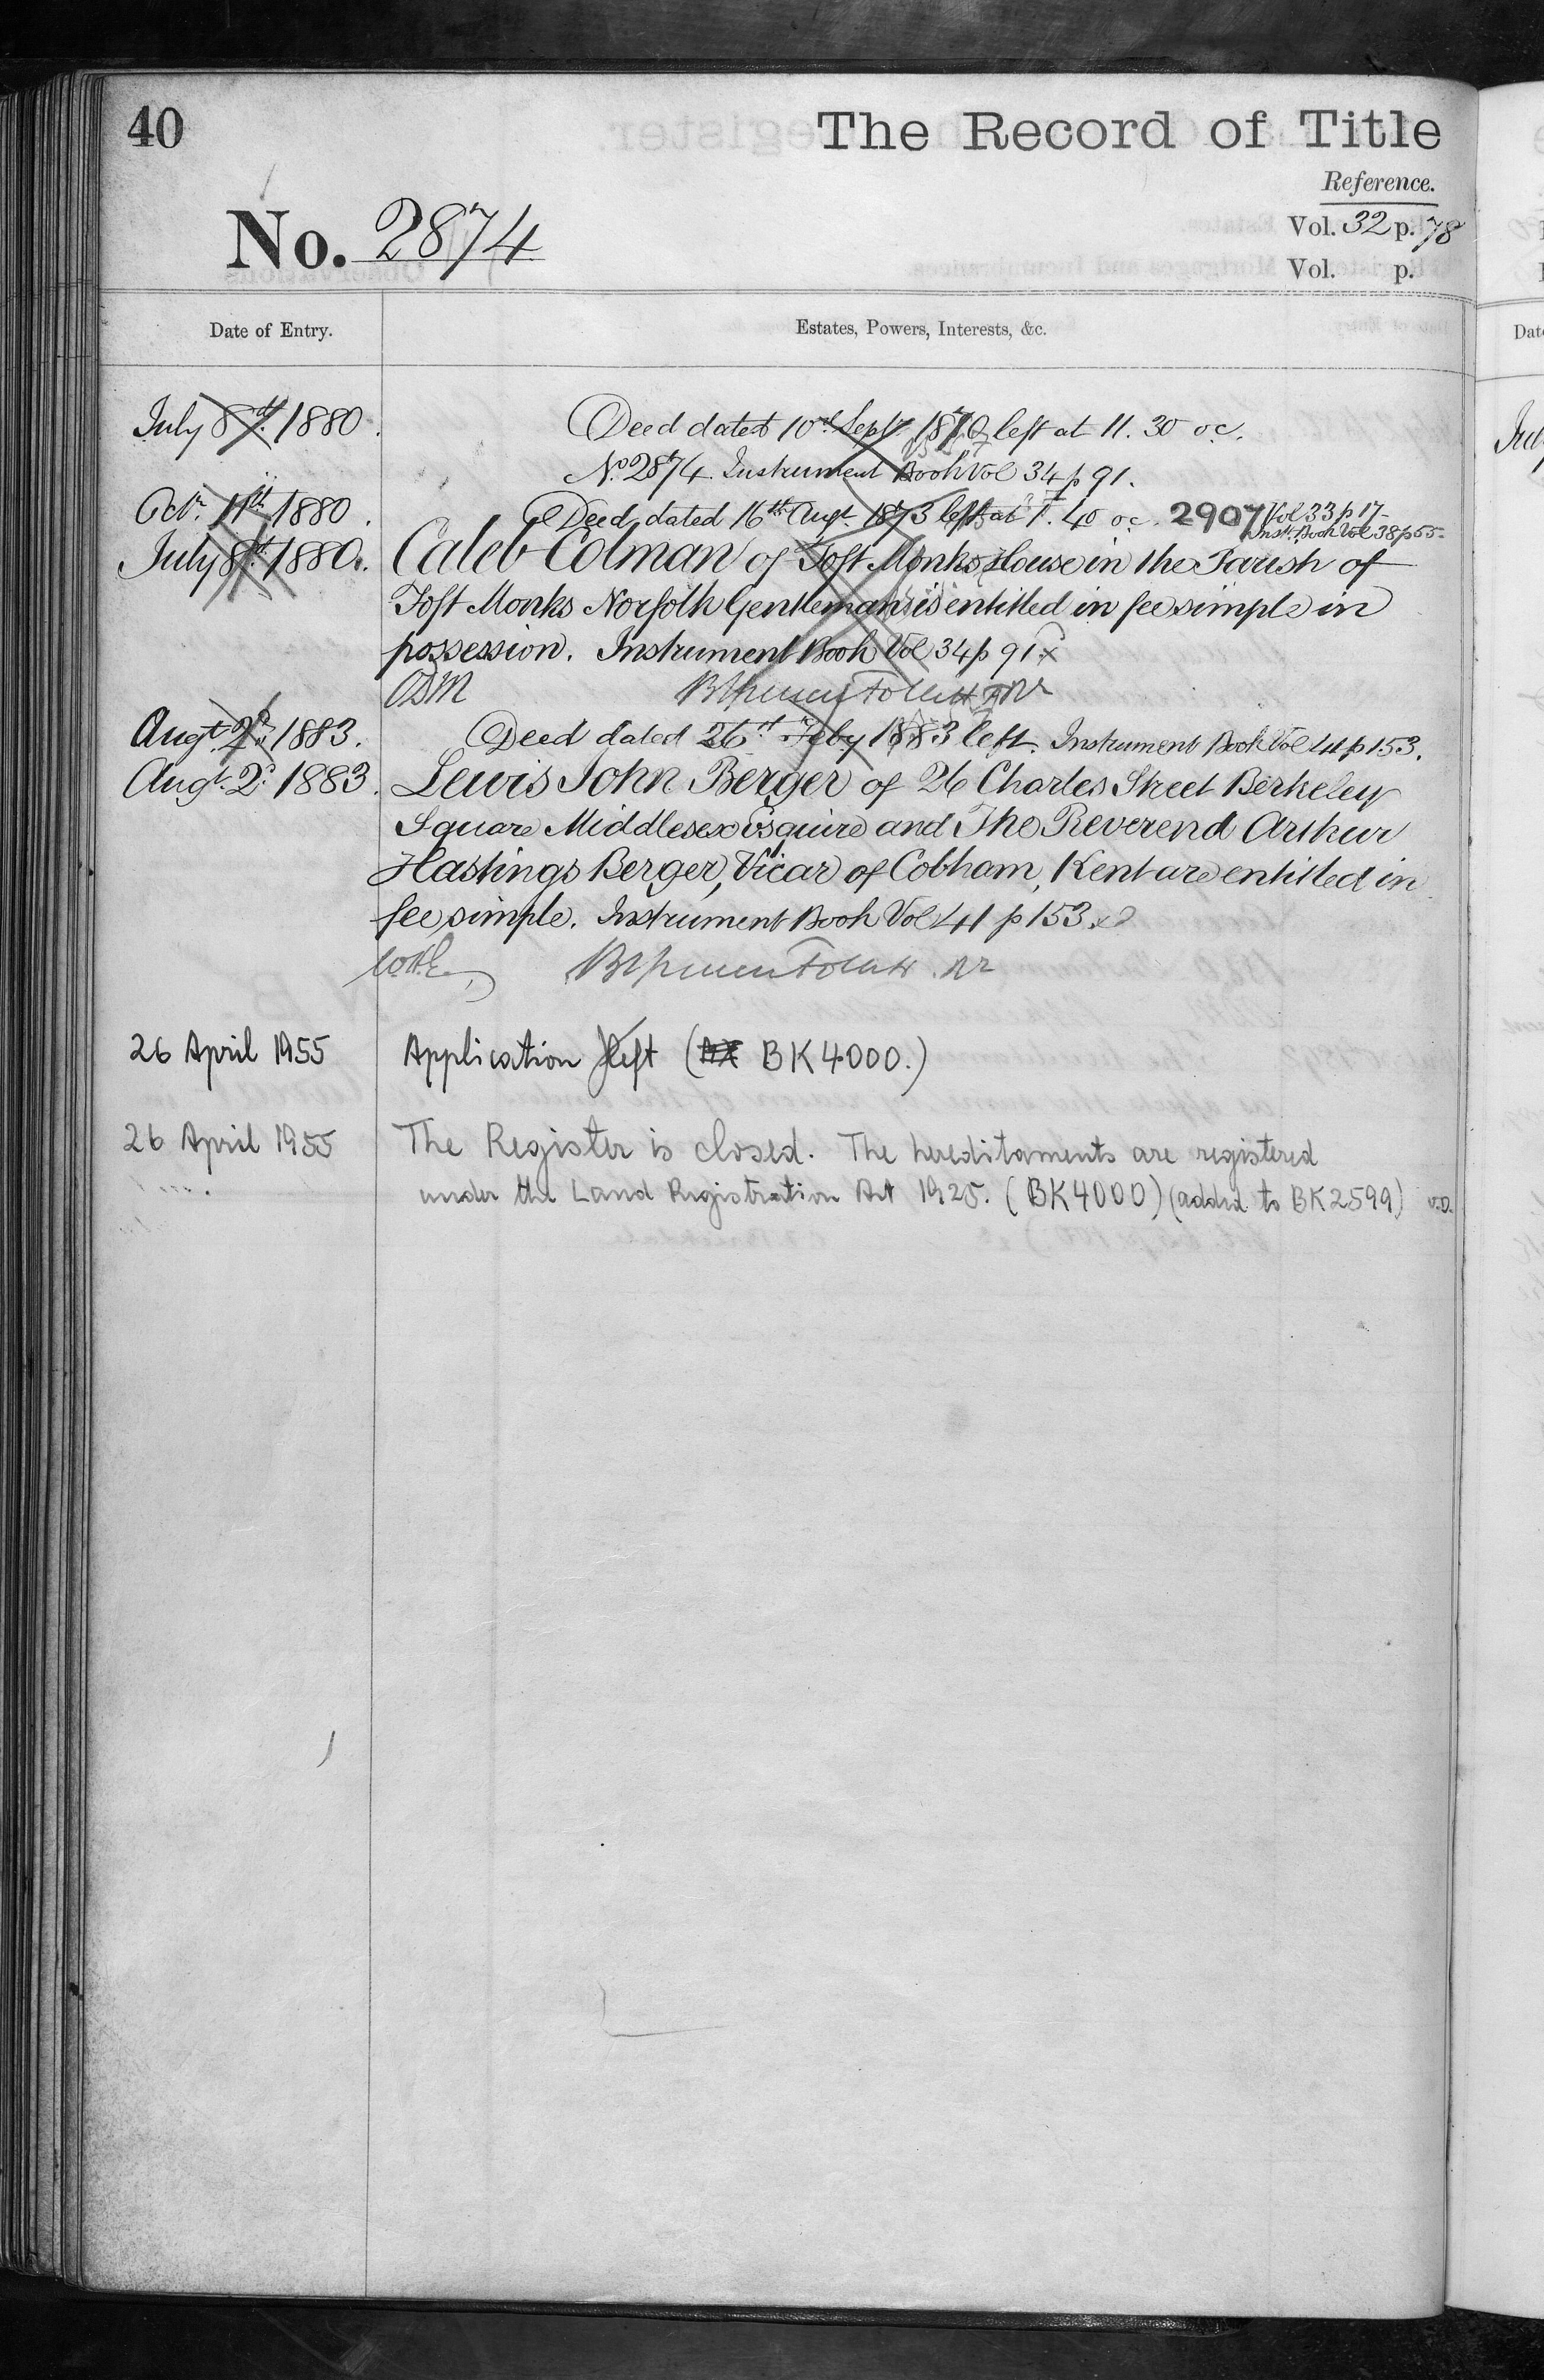 40
The Record of Title
Reference.
No. 2874
Vol. 32 p. 78
Vol. p.
Date of Entry.
Estates, Powers, Interests, &c.
July 8th 1880.
Deed dated 10th Septr 1870 left at 11.30 oc.
No. 2874. Instrument Book Vol 34 p 91.
Octr. 11th 1880.
Deed dated 16th Augt. 1873 left at 1.40 oc. 2907 Vol 33 p 17
Inst. Book Vol 38 p 55
July 8th 1880.
Caleb Colman of Toft Monks House in the Parish of
Toft Monks Norfolk Gentleman is entitled in fee simple in
possession. Instrument Book Vol 34 p 91.
Augt. 2d 1883.
Deed dated 26th Feby 1883 left. Instrument Book Vol 41 p 153.
Augt. 2d 1883.
Lewis John Berger of 26 Charles Street Berkeley
Square Middlesex Esquire and The Reverend Arthur
Hastings Berger, Vicar of Cobham, Kent are entitled in
fee simple. Instrument Book Vol 41 p 153.
26 April 1955
Application left (BK4000.)
26 April 1955
The Register is closed. The hereditaments are registered
under the Land Registration Act 1925. (BK4000) (added to BK2599) V.D.